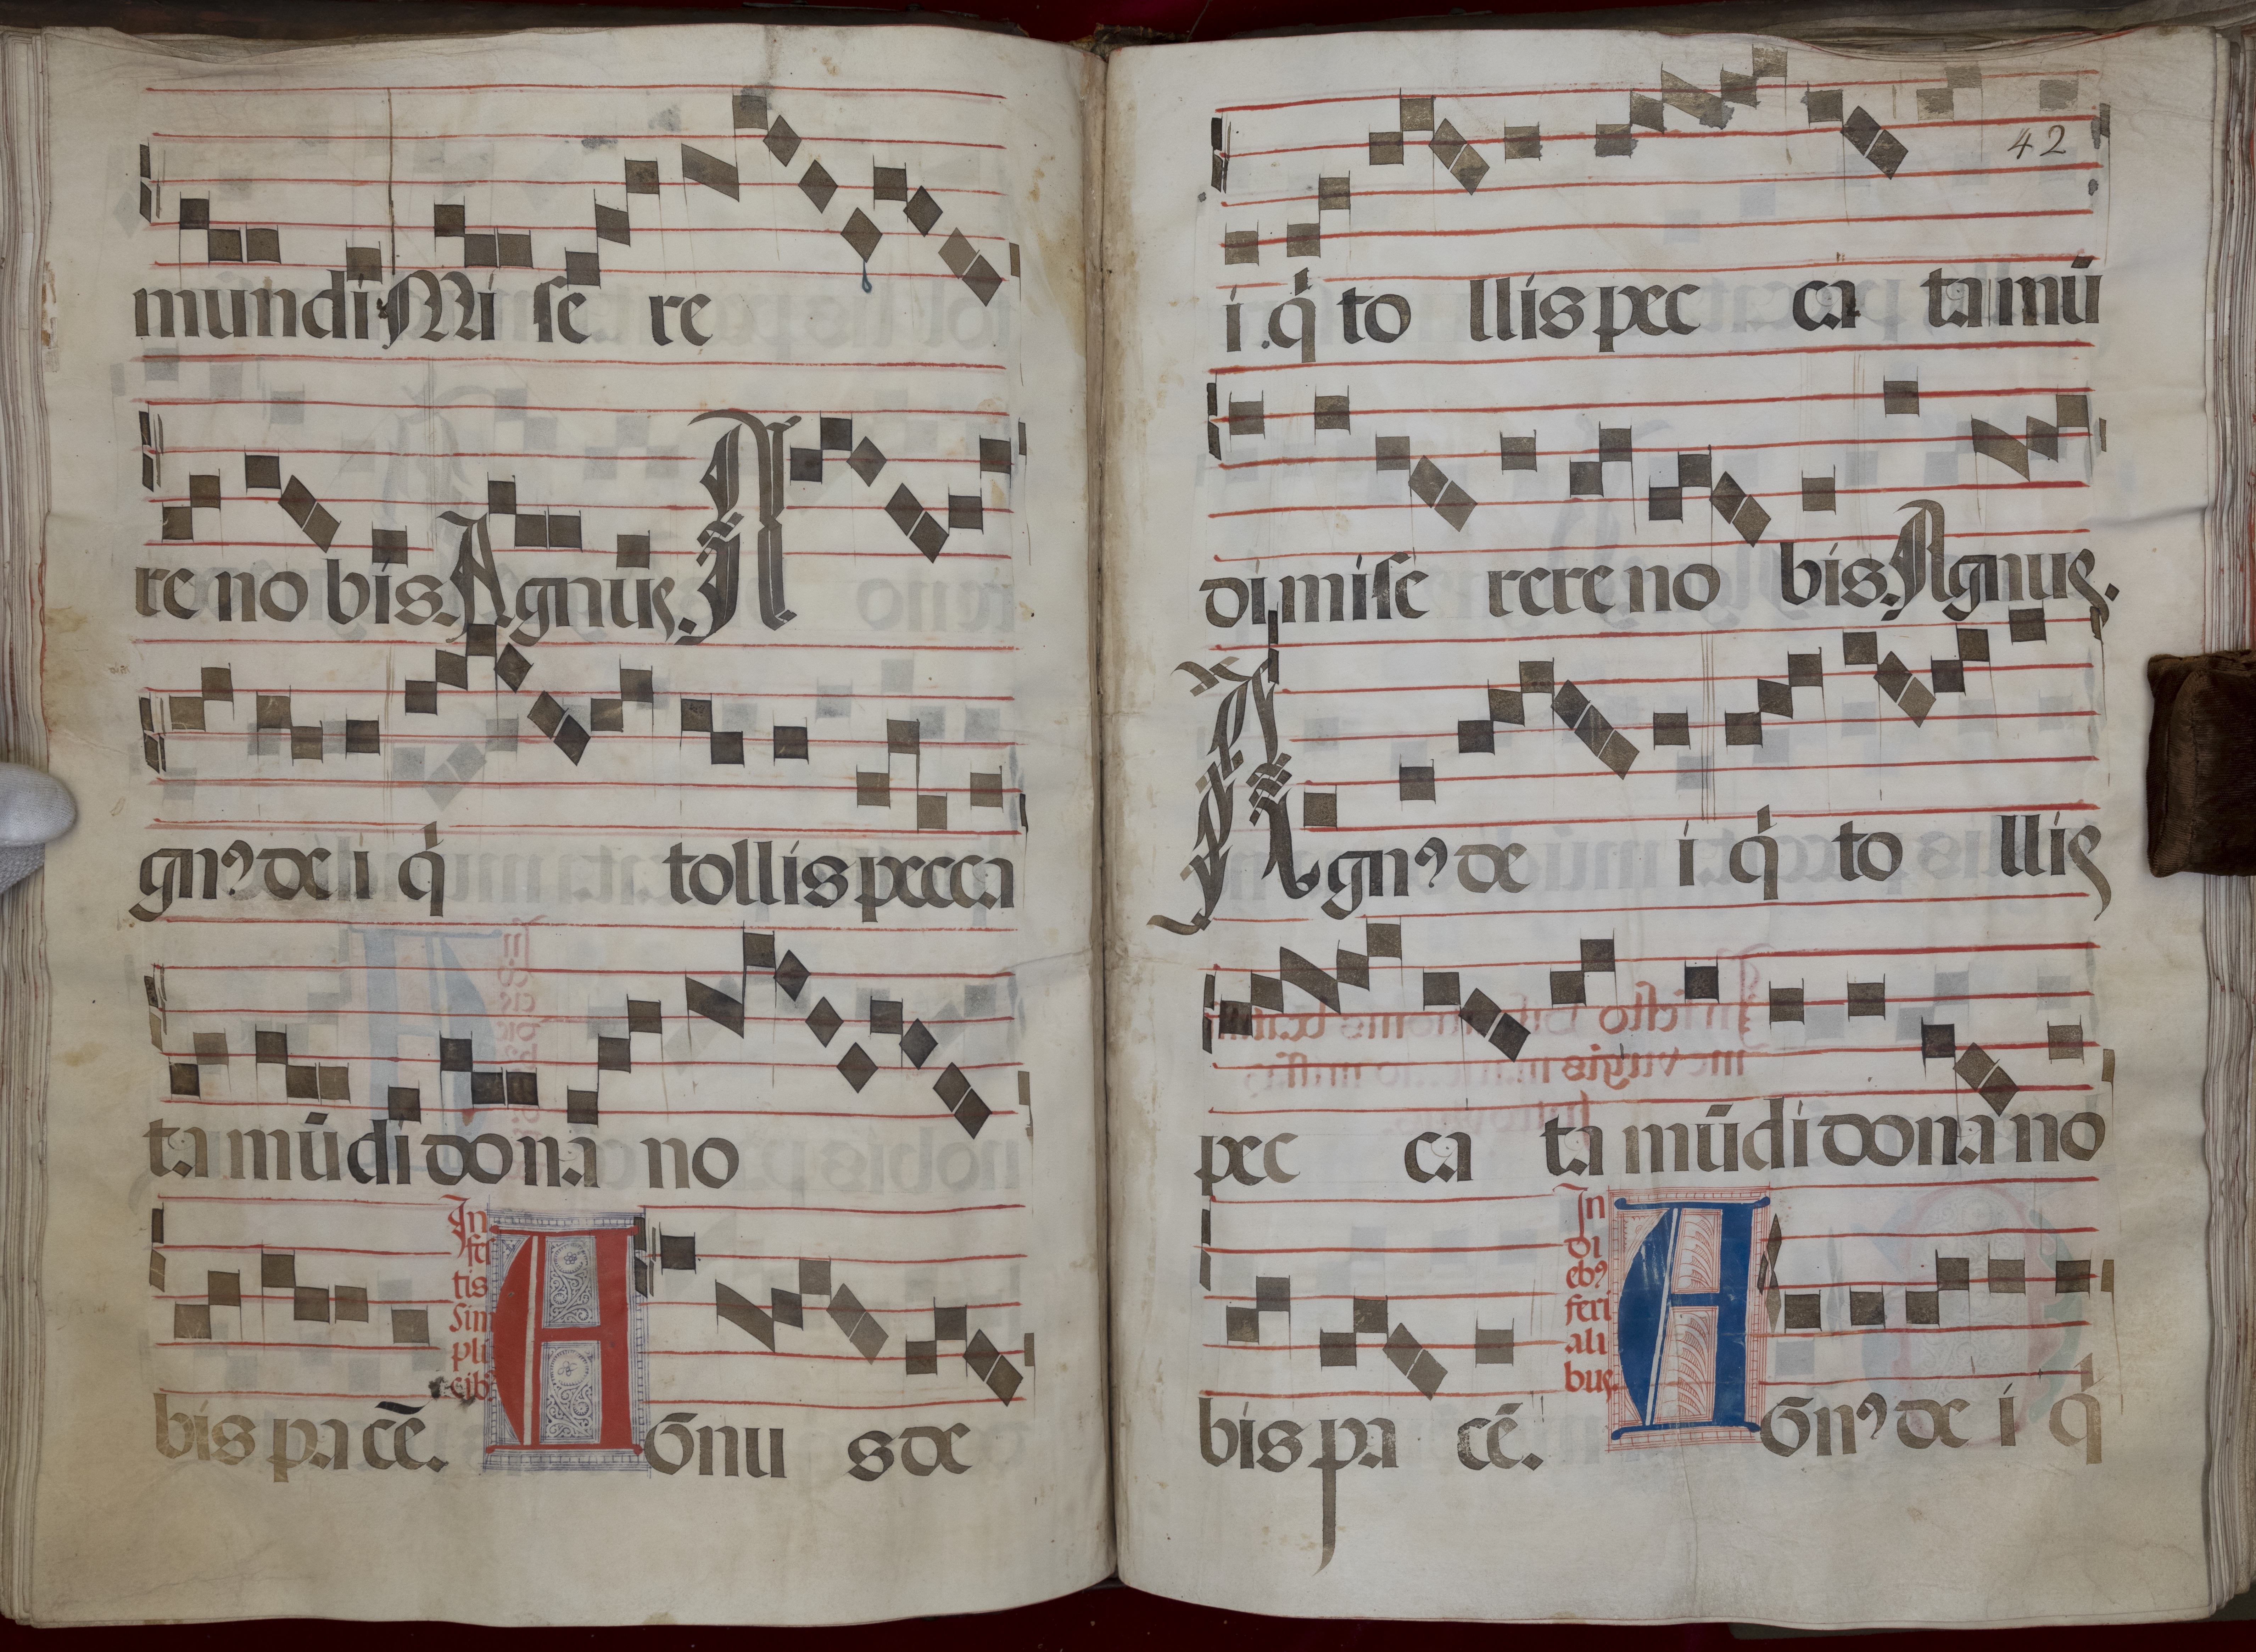 mundi Mi se re
re no bis. Agnus.
gnꝰ de i q̇ tollis pecca
ta mūdi dona no
In
fes
tis
sim
pli
cib
bis pa cē.
A Gnu s de
42
i q̇ to llis pec ca ta mū
di mise rere no bis. Agnus.
Agnꝰ de i q̇ to llis
pec ca ta mūdi dona no
In
di
ebꝰ
feri
ali
bus
bis pa cē.
A Gnꝰ de i q̇